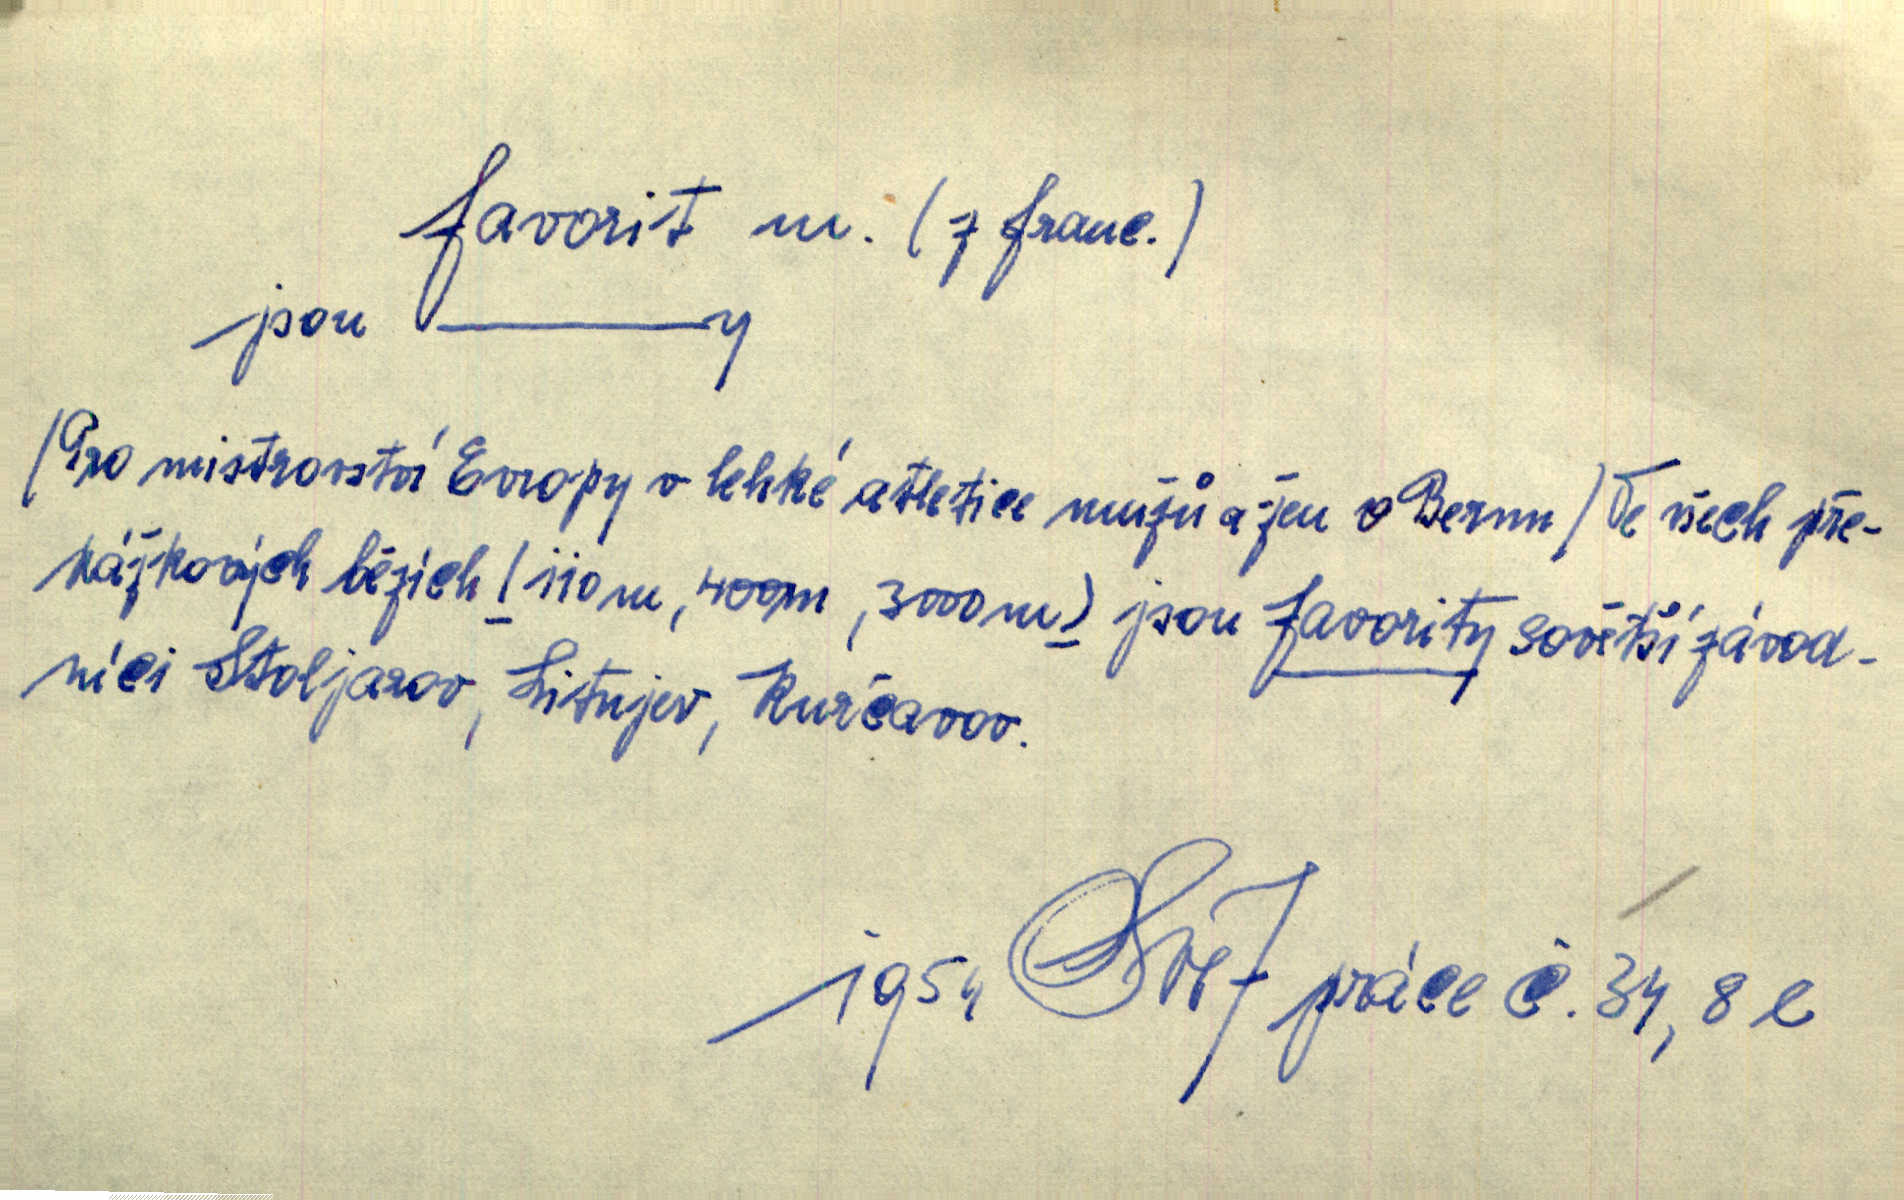 favorit m. (z franc.)
jsou ———y
/Pro mistrovství Evropy v lehké atletice mužů a žen v Bernu/ Ve všech pře-
kážkových bězích (110 m, 400 m, 3000 m) jsou favority sovětští závod-
níci Stoljarov, Litujev, Kurčavov.
1954 Svět práce č. 34, 8 c